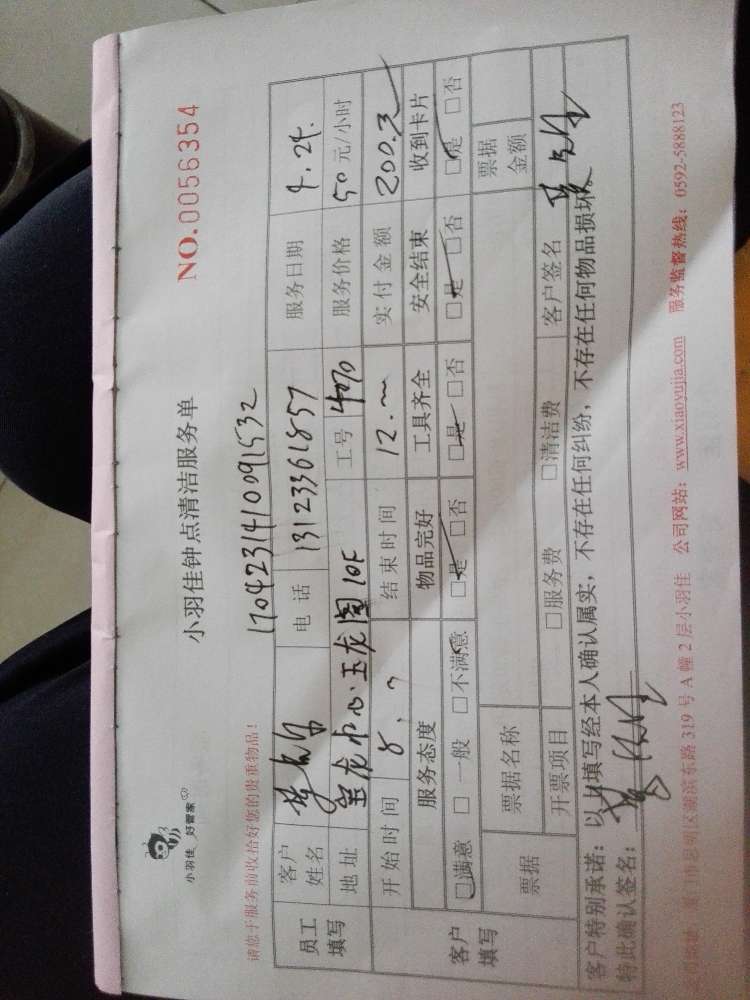 小羽佳 好管家
小羽佳钟点清洁服务单
NO.0056354
请您于服务前收拾好您的贵重物品!
170423141009 1532
员工填写
客户姓名 电话 13123361857 服务日期 4.24.
地址 金龙中心·玉龙阁10F 工号 4070 服务价格 50元/小时
开始时间 8. 结束时间 12. 实付金额 200.元
客户填写
服务态度 物品完好 工具齐全 安全结束 收到卡片
□满意 □一般 □不满意 □是 □否 □是 □否 □是 □否 □是 □否
票据 票据名称 票据金额
开票项目 □服务费 □清洁费 客户签名
客户特别承诺：以上填写经本人确认属实，不存在任何纠纷，不存在任何物品损坏。
特此确认签名：
思明区湖滨东路 319 号 A 幢 2 层小羽佳 公司网站：www.xiaoyujia.com 服务监督热线：0592-5888123